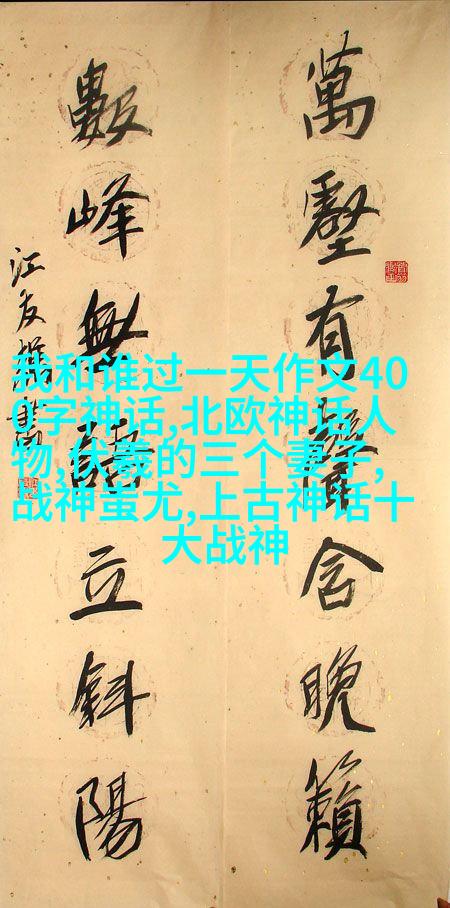 萬壑有聲含晚籟
數峰無語立斜陽
江友樵書
我和谁过一天作文40
0字神话,北欧神话人
物,伏羲的三个妻子,
战神蚩尤,上古神话十
大战神